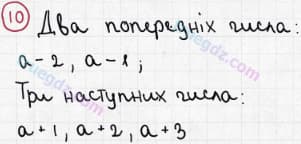 10 Два попередніх числа:
a - 2, a - 1;
Три наступних числа:
a + 1, a + 2, a + 3